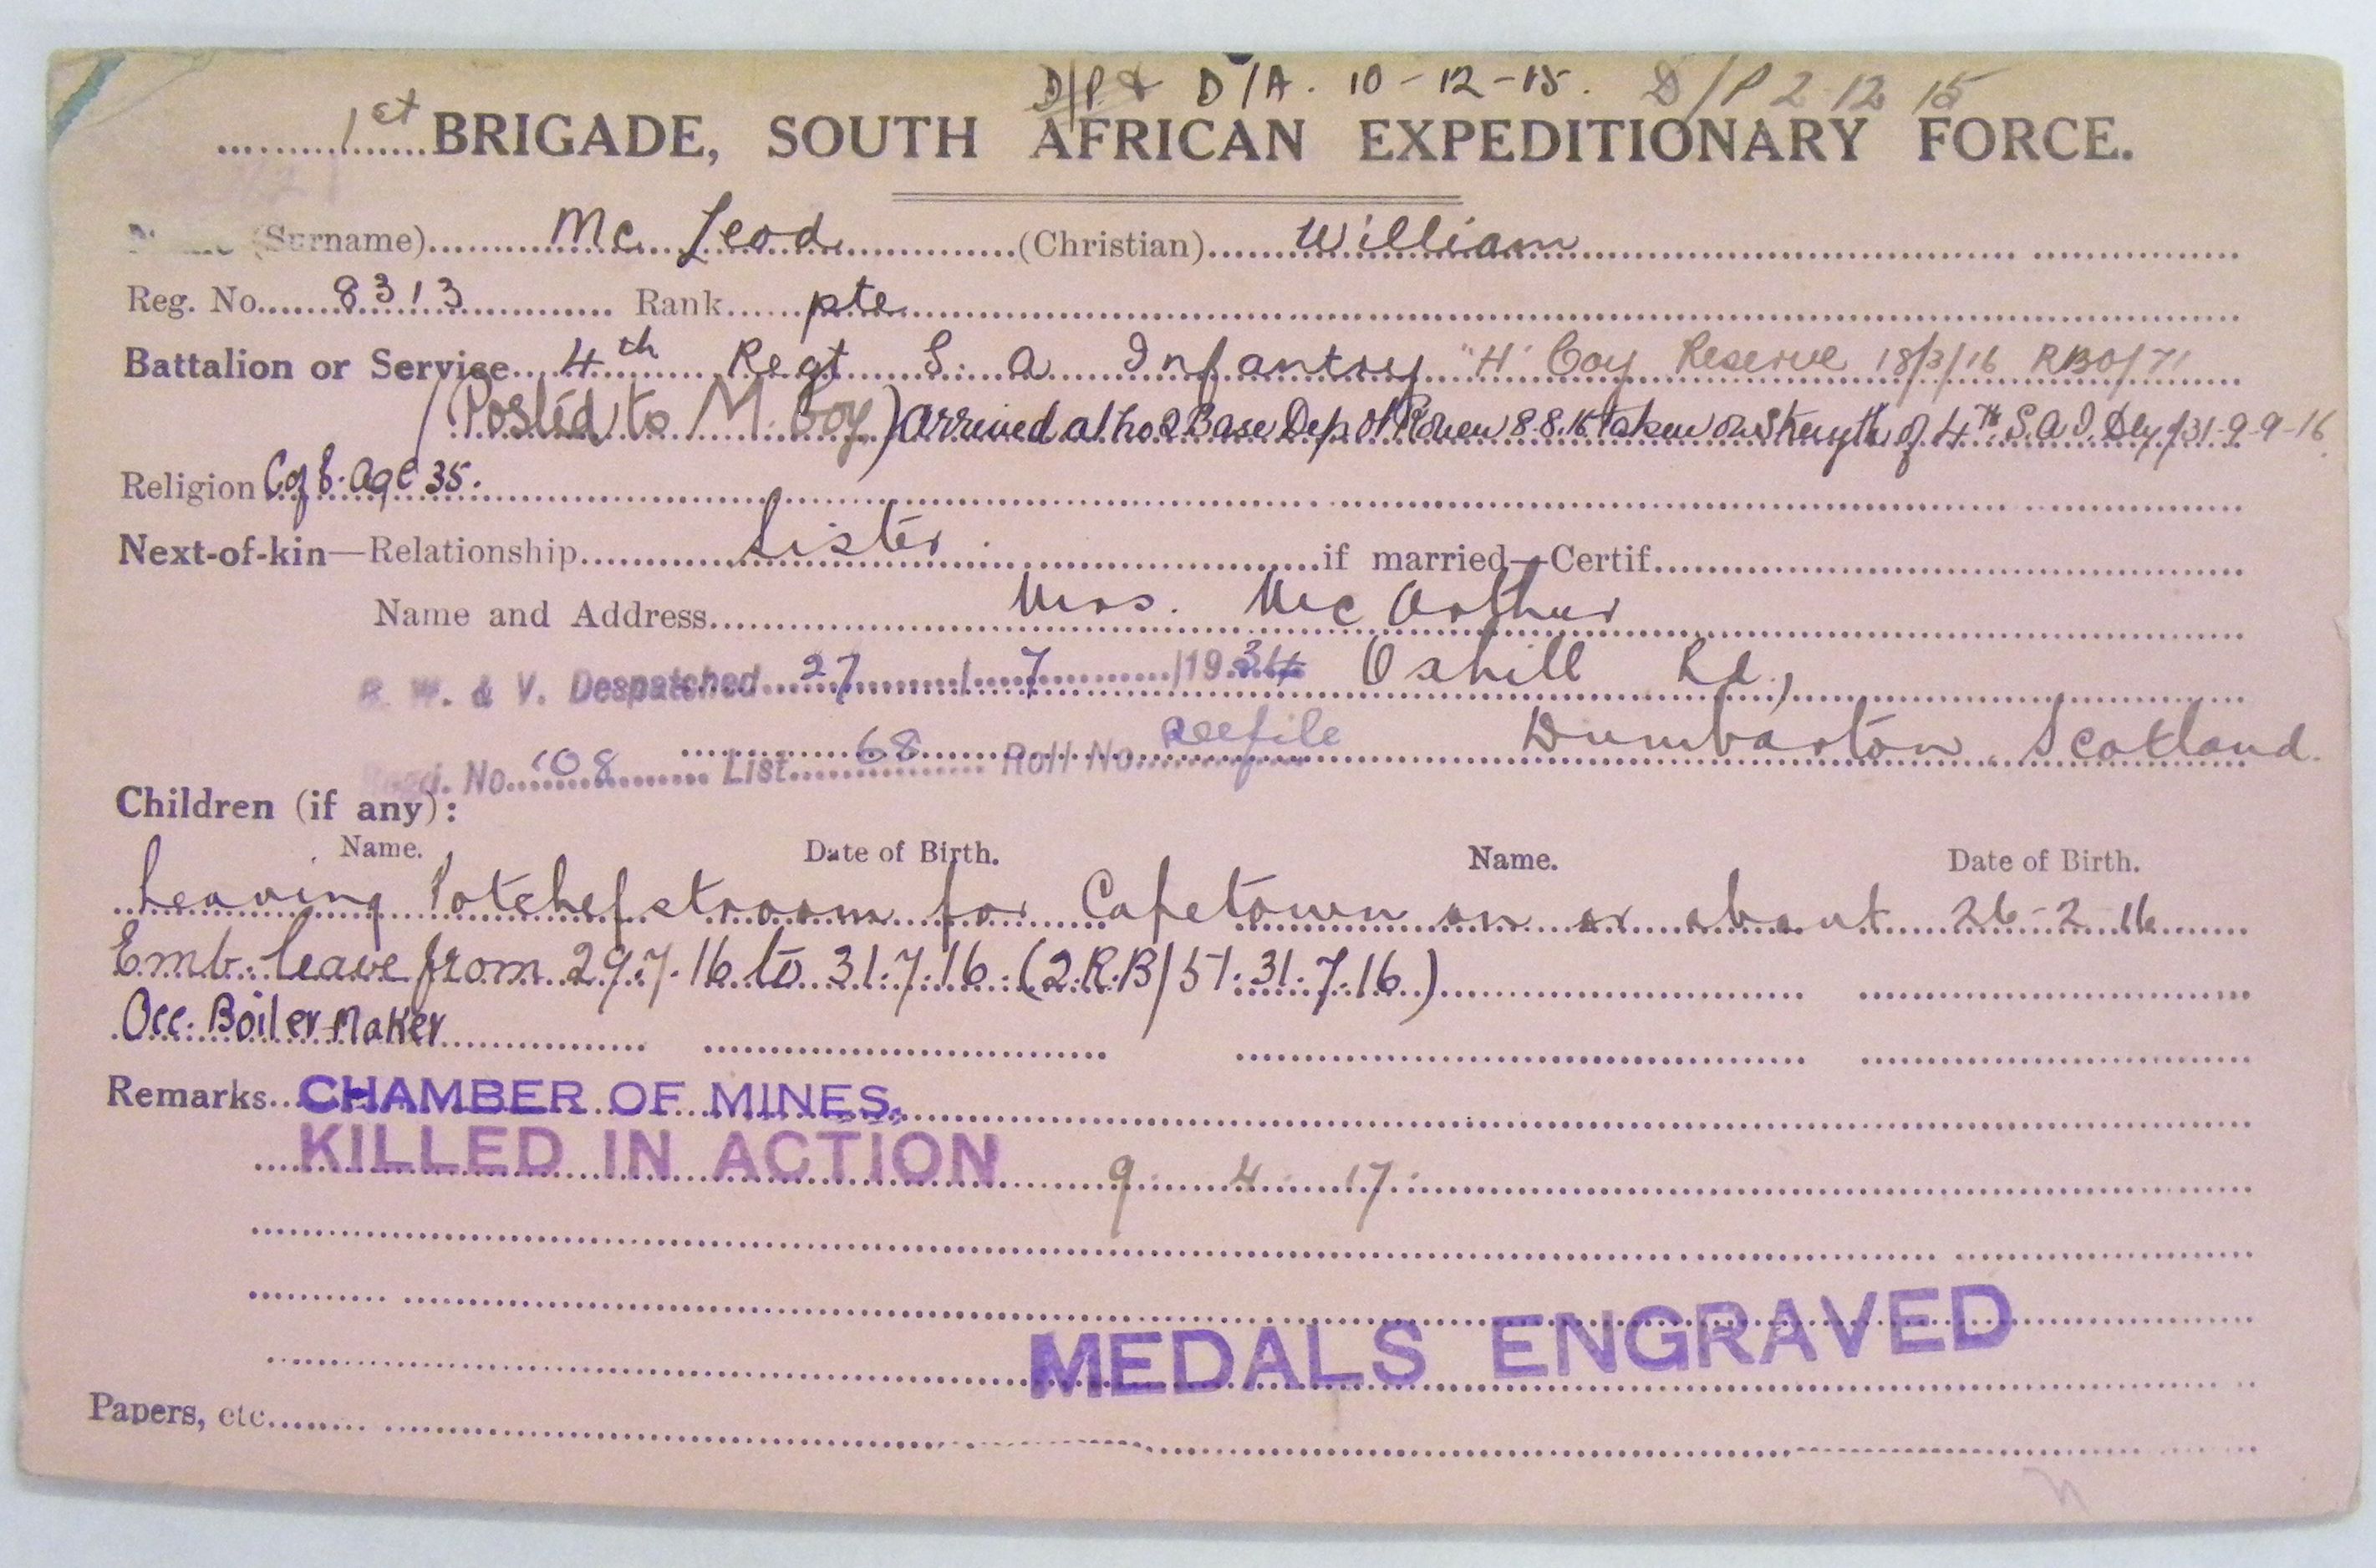 D/P & D/A. 10-12-15. D/P 2 12 15
1st BRIGADE, SOUTH AFRICAN EXPEDITIONARY FORCE.
(Surname) Mc Leod (Christian) William
Reg. No. 8313 Rank pte
Battalion or Service 4th Regt S. A Infantry "H" Coy Reserve 18/3/16 RBO/71
(Posted to M. Coy) Arrived at No 2 Base Depot Rouen 8.8.16 taken on Strength of 4TH S.A.I. 9-9-16
Religion C of S. age 35.
Next-of-kin—Relationship Sister. if married—Certif.
Name and Address Mrs. Mc Arthur
B. W. & V. Despatched 27/7/19 Oxhill Rd.,
No. 108 List 68 Roll No. Dumbarton, Scotland.
Children (if any):
Name. Date of Birth. Name. Date of Birth.
Leaving Potchefstroom for Capetown on or about 26-2-16
Emb. leave from 29.7.16 to 31.7.16. (2.R.B/51. 31.7.16)
Occ: Boiler Maker
Remarks CHAMBER OF MINES.
KILLED IN ACTION 9 4 17
MEDALS ENGRAVED
Papers, etc.